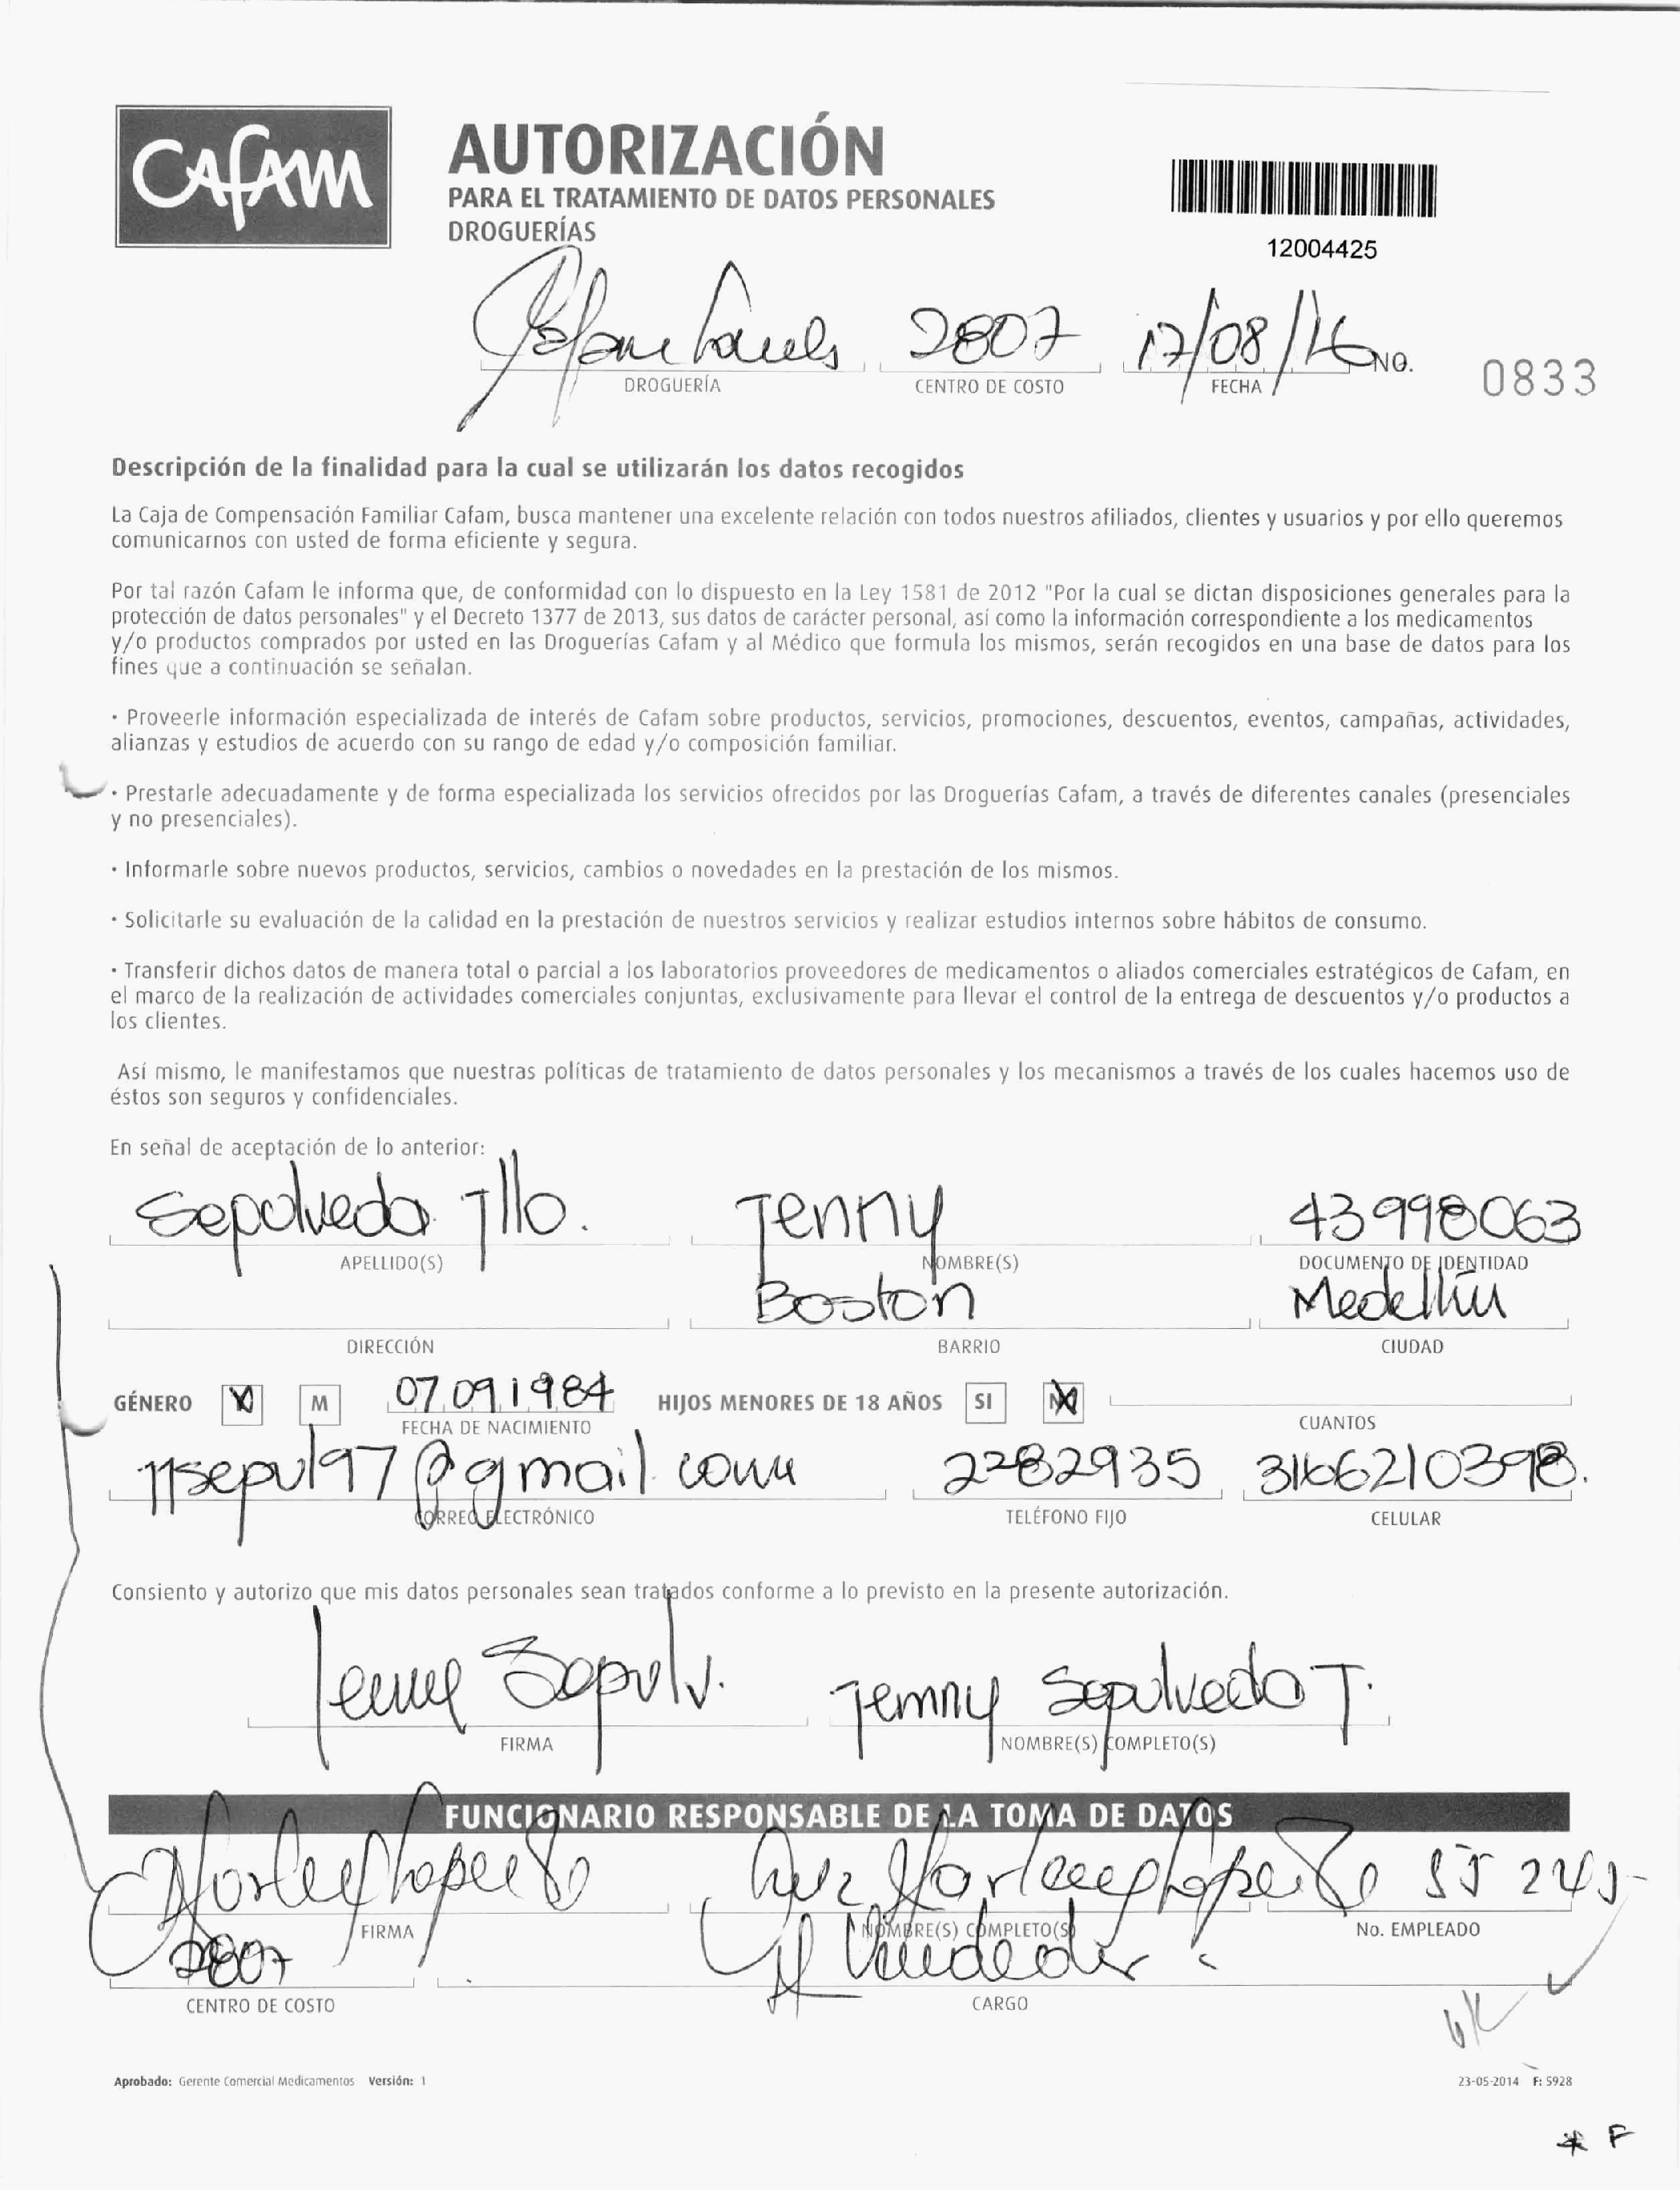 CAFAM
AUTORIZACIÓN
PARA EL TRATAMIENTO DE DATOS PERSONALES
DROGUERÍAS
12004425
2807 17/08/16 NO. 0833
DROGUERÍA CENTRO DE COSTO FECHA
Descripción de la finalidad para la cual se utilizarán los datos recogidos
La Caja de Compensación Familiar Cafam, busca mantener una excelente relación con todos nuestros afiliados, clientes y usuarios y por ello queremos
comunicarnos con usted de forma eficiente y segura.
Por tal razón Cafam le informa que, de conformidad con lo dispuesto en la Ley 1581 de 2012 "Por la cual se dictan disposiciones generales para la
protección de datos personales" y el Decreto 1377 de 2013, sus datos de carácter personal, así como la información correspondiente a los medicamentos
y/o productos comprados por usted en las Droguerías Cafam y al Médico que formula los mismos, serán recogidos en una base de datos para los
fines que a continuación se señalan.
· Proveerle información especializada de interés de Cafam sobre productos, servicios, promociones, descuentos, eventos, campañas, actividades,
alianzas y estudios de acuerdo con su rango de edad y/o composición familiar.
· Prestarle adecuadamente y de forma especializada los servicios ofrecidos por las Droguerías Cafam, a través de diferentes canales (presenciales
y no presenciales).
· Informarle sobre nuevos productos, servicios, cambios o novedades en la prestación de los mismos.
· Solicitarle su evaluación de la calidad en la prestación de nuestros servicios y realizar estudios internos sobre hábitos de consumo.
· Transferir dichos datos de manera total o parcial a los laboratorios proveedores de medicamentos o aliados comerciales estratégicos de Cafam, en
el marco de la realización de actividades comerciales conjuntas, exclusivamente para llevar el control de la entrega de descuentos y/o productos a
los clientes.
Así mismo, le manifestamos que nuestras políticas de tratamiento de datos personales y los mecanismos a través de los cuales hacemos uso de
éstos son seguros y confidenciales.
En señal de aceptación de lo anterior:
Sepulveda Tllo. Jenny 43998063
APELLIDO(S) NOMBRE(S) DOCUMENTO DE IDENTIDAD
Boston Medellín
DIRECCIÓN BARRIO CIUDAD
GÉNERO X M 07 09 1984 HIJOS MENORES DE 18 AÑOS SI X
FECHA DE NACIMIENTO CUANTOS
jjsepul97@gmail.com 2282935 3166210398.
CORREO ELECTRÓNICO TELÉFONO FIJO CELULAR
Consiento y autorizo que mis datos personales sean tratados conforme a lo previsto en la presente autorización.
Jenny Sepulv. Jenny Sepulveda T.
FIRMA NOMBRE(S) COMPLETO(S)
FUNCIONARIO RESPONSABLE DE LA TOMA DE DATOS
FIRMA NOMBRE(S) COMPLETO(S) No. EMPLEADO
2807 Vendedor
CENTRO DE COSTO CARGO
Aprobado: Gerente Comercial Medicamentos Versión: 1 23-05-2014 F: 5928
* F